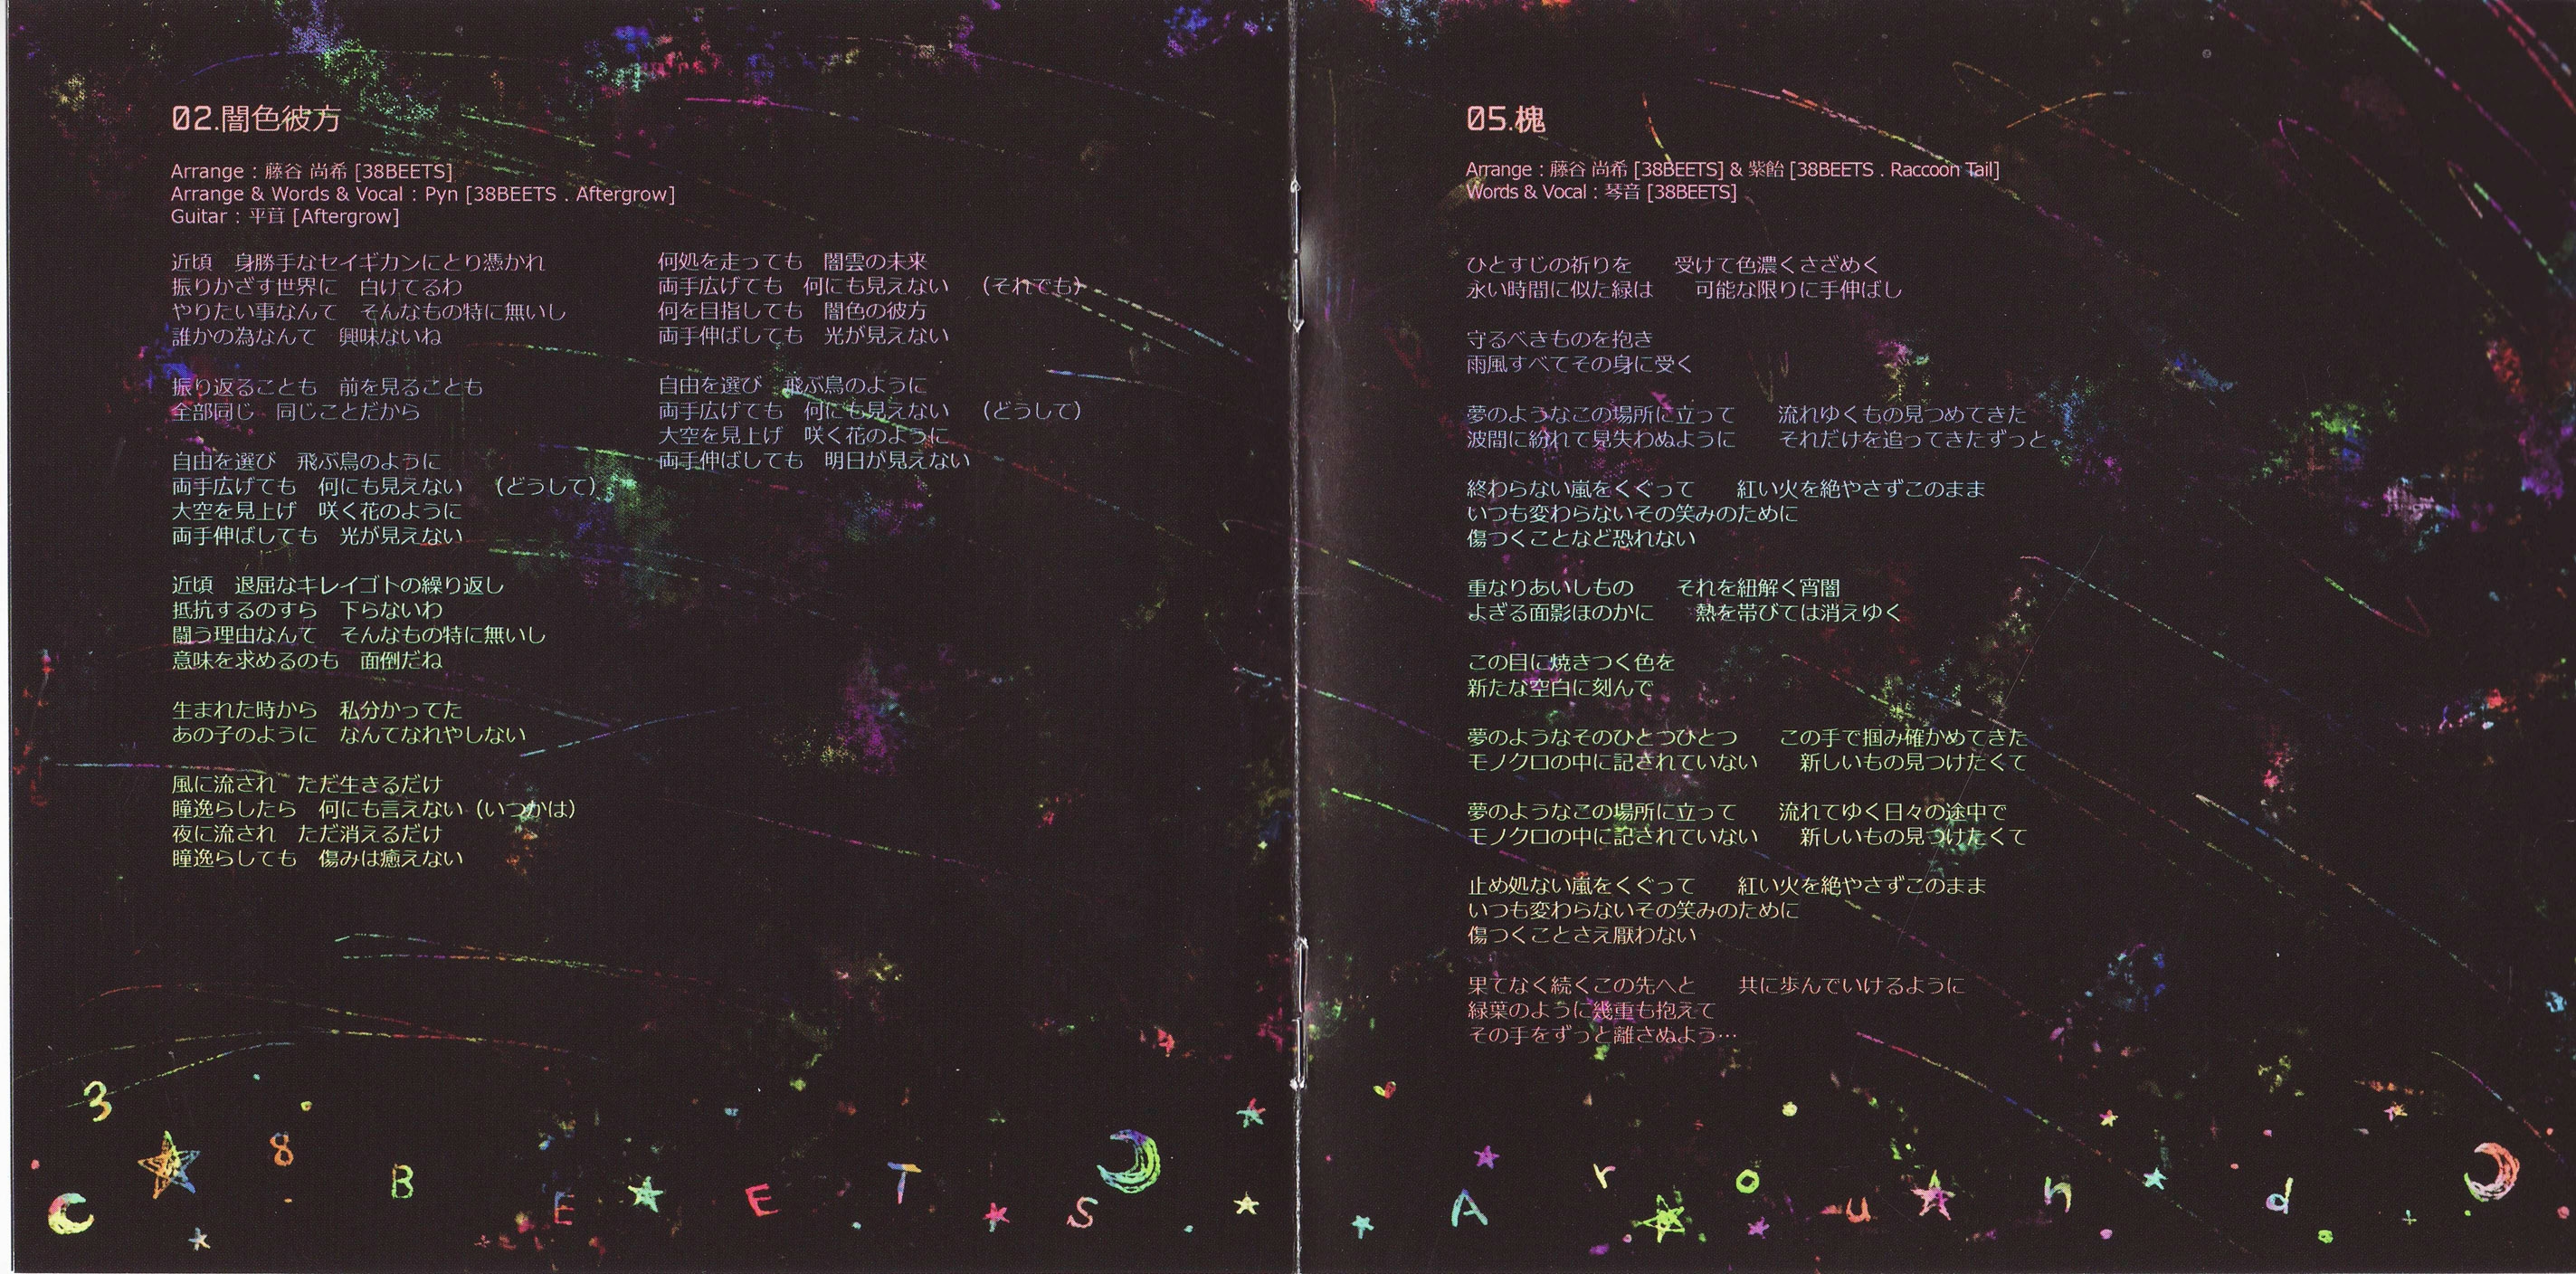 02.闇色彼方
Arrange : 藤谷 尚希 [38BEETS]
Arrange & Words & Vocal : Pyn [38BEETS . Aftergrow]
Guitar : 平茸 [Aftergrow]
近頃　身勝手なセイギカンにとり憑かれ
振りかざす世界に　白けてるわ
やりたい事なんて　そんなもの特に無いし
誰かの為なんて　興味ないね
振り返ることも　前を見ることも
全部同じ　同じことだから
自由を選び　飛ぶ鳥のように
両手広げても　何にも見えない　（どうして）
大空を見上げ　咲く花のように
両手伸ばしても　光が見えない
近頃　退屈なキレイゴトの繰り返し
抵抗するのすら　下らないわ
闘う理由なんて　そんなもの特に無いし
意味を求めるのも　面倒だね
生まれた時から　私分かってた
あの子のように　なんてなれやしない
風に流され　ただ生きるだけ
瞳逸らしたら　何にも言えない（いつかは）
夜に流され　ただ消えるだけ
瞳逸らしても　傷みは癒えない
何処を走っても　闇雲の未来
両手広げても　何にも見えない　（それでも）
何を目指しても　闇色の彼方
両手伸ばしても　光が見えない
自由を選び　飛ぶ鳥のように
両手広げても　何にも見えない　（どうして）
大空を見上げ　咲く花のように
両手伸ばしても　明日が見えない
05.槐
Arrange : 藤谷 尚希 [38BEETS] & 紫飴 [38BEETS . Raccoon Tail]
Words & Vocal : 琴音 [38BEETS]
ひとすじの祈りを　　受けて色濃くさざめく
永い時間に似た緑は　　可能な限りに手伸ばし
守るべきものを抱き
雨風すべてその身に受く
夢のようなこの場所に立って　　流れゆくもの見つめてきた
波間に紛れて見失わぬように　　それだけを追ってきたずっと
終わらない嵐をくぐって　　紅い火を絶やさずこのまま
いつも変わらないその笑みのために
傷つくことなど恐れない
重なりあいしもの　　それを紐解く宵闇
よぎる面影ほのかに　　熱を帯びては消えゆく
この目に焼きつく色を
新たな空白に刻んで
夢のようなそのひとつひとつ　　この手で掴み確かめてきた
モノクロの中に記されていない　　新しいもの見つけたくて
夢のようなこの場所に立って　　流れてゆく日々の途中で
モノクロの中に記されていない　　新しいもの見つけたくて
止め処ない嵐をくぐって　　紅い火を絶やさずこのまま
いつも変わらないその笑みのために
傷つくことさえ厭わない
果てなく続くこの先へと　　共に歩んでいけるように
緑葉のように幾重も抱えて
その手をずっと離さぬよう…
38BEETS Around